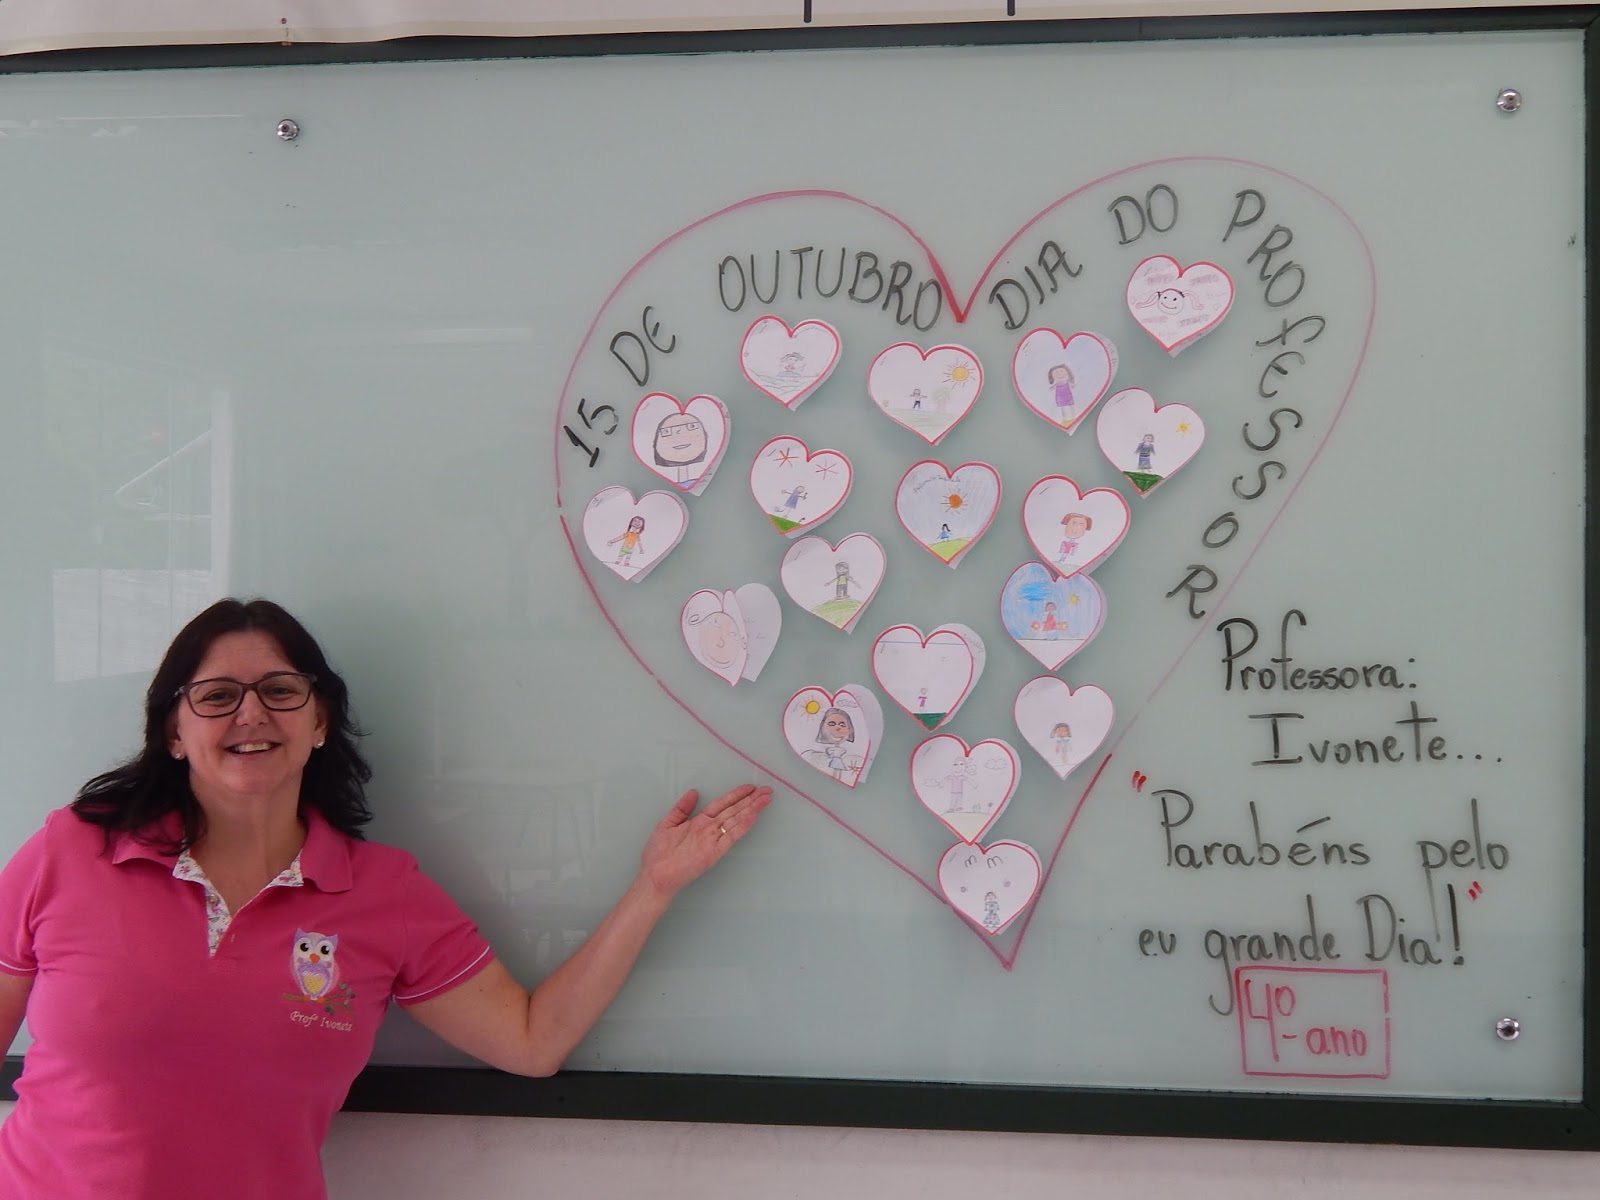 15 DE OUTUBRO DIA DO PROFESSOR
Professora:
Ivonete...
"Parabéns pelo
eu grande Dia!"
4º-ano
Profª Ivonete